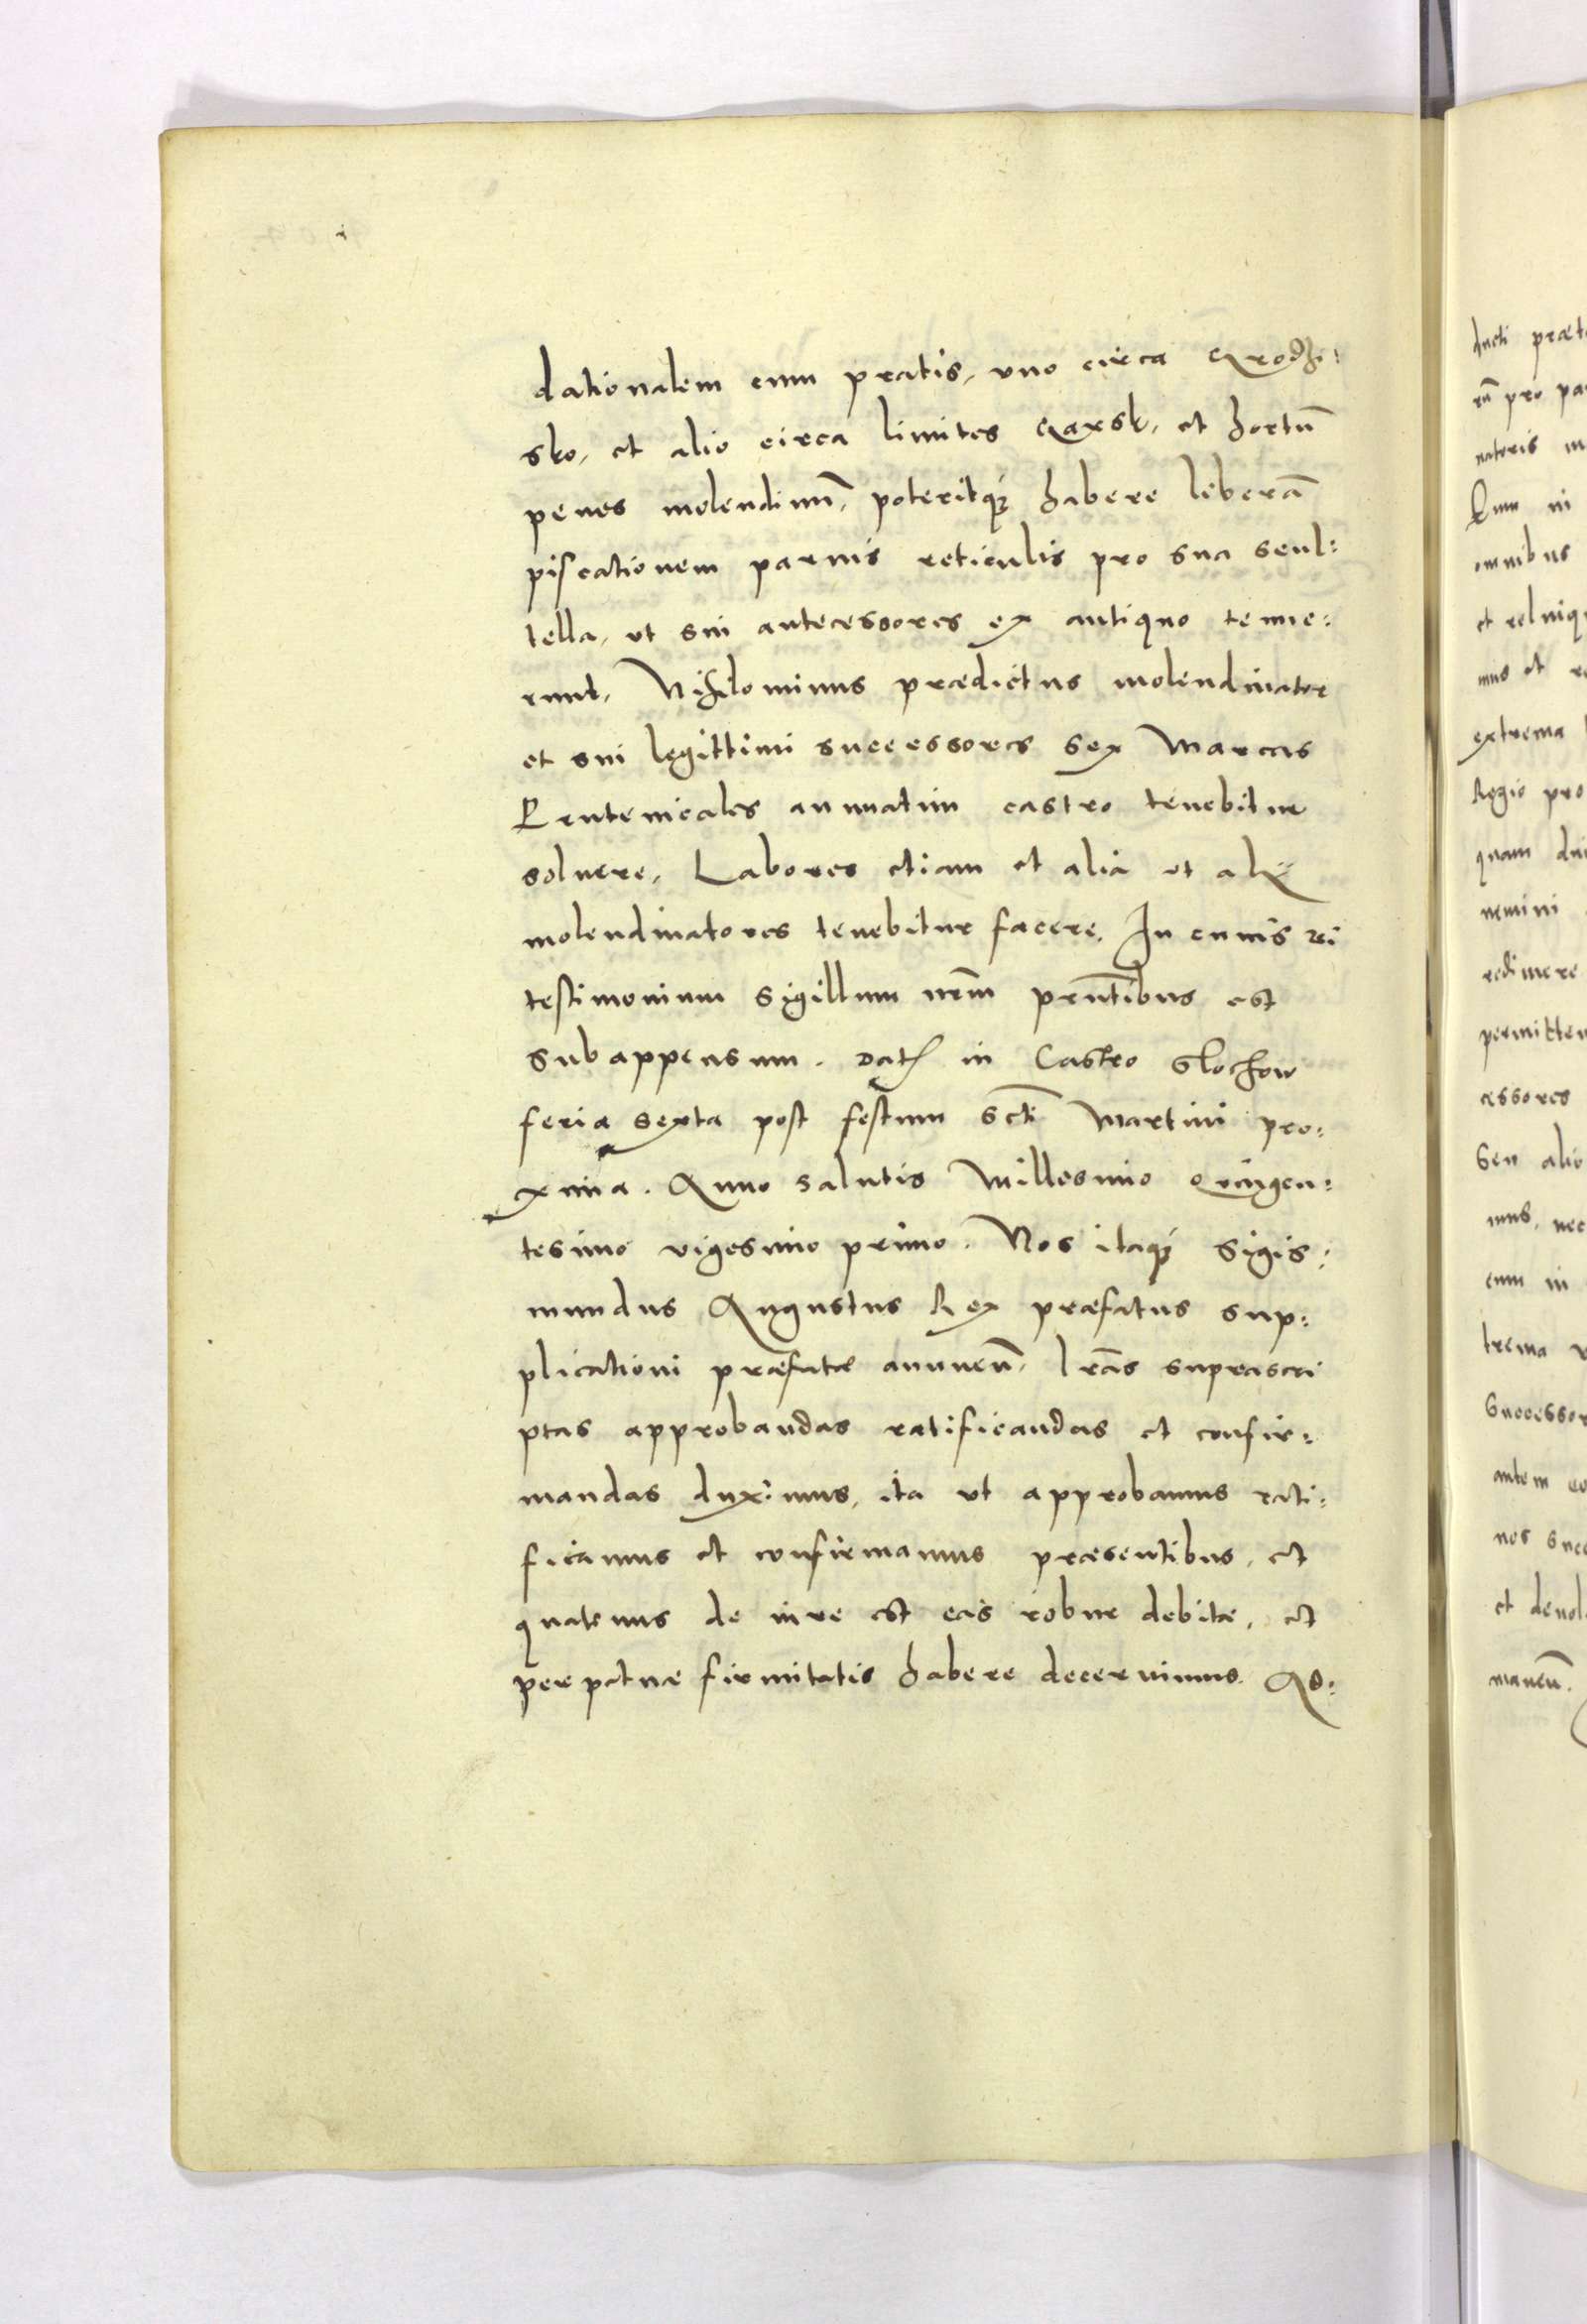 dationalem cum pratis, vno circa Grodzi:
sko, et alio circa limites Garsk, et hortū
penes molendinū, poteritque habere liberā
piscationem paruis reticulis pro sua scul:
tella, ut sui antecessores ex antiquo tenue:
runt, Nihilominus prædictus molendinator
et sui legittimi successores sex marcas
Prutenicales annuatim castro tenebitur
soluere, Labores etiam et alia ut alij
molendinatores tenebitur facere, In cuius rei
testimonium sigillum nrm̄ prntibus est
subappensum. Dat in Castro Slochow
feria sexta post festum Scti Martini pro:
xima. Anno salutis Millesimo Quingen:
tesimo vigesimo primo. Nos itaque Sigis:
mundus Augustus Rex præfatus sup:
plicationi præfatæ annuen̄, lr̄as suprascri
ptas approbandas ratificandas et confir:
mandas duximus, ita ut approbamus rati:
ficamus et confirmamus præsentibus, et
quatenus de iure est eas robur debitæ, et
perpetuæ firmitatis habere decernimus. As:
ducti
rū pro
natoris
Cum in
omnibus
et
mus et
extrema
Regio pro
quam
nemini
redimere
cessores
Seu alio
mus, nec
eum in
trema
Successor
autem
nos
et
manen̄.